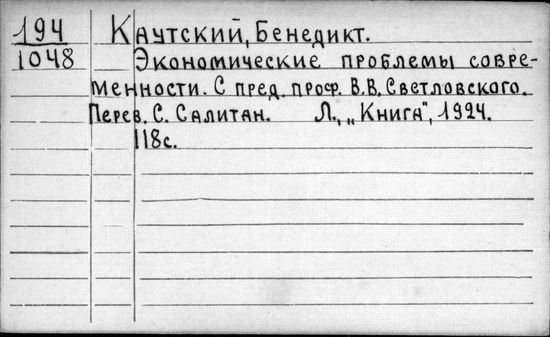 194 Каутский, Бенедикт.
1048 Экономические проблемы совре-
менности. С пред. проф. В.В. Светловского.
Перев. С. Салитан. Л., „Книга", 1924.
118с.